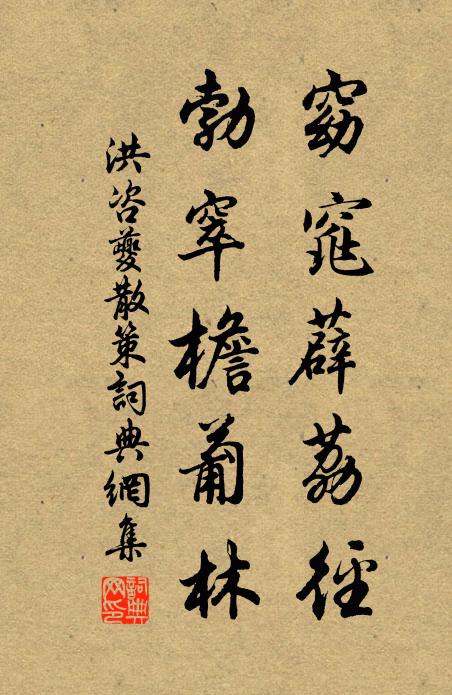 窈窕薜荔徑
勃窣檐蔔林
洪咨夔散策詞典網集
詞典
网印